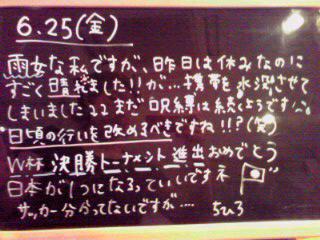 6.25(金)
雨女な私ですが、昨日は休みなのに
すごく晴れました!!が…携帯を水没させて
しまいましたココまだ呪縛は続くようです
日頃の行いを改めるべきですね!!?(笑)
W杯 決勝トーナメント進出おめでとう
日本が1つになるっていいですネ
サッカー分かってないですが…. ちひろ